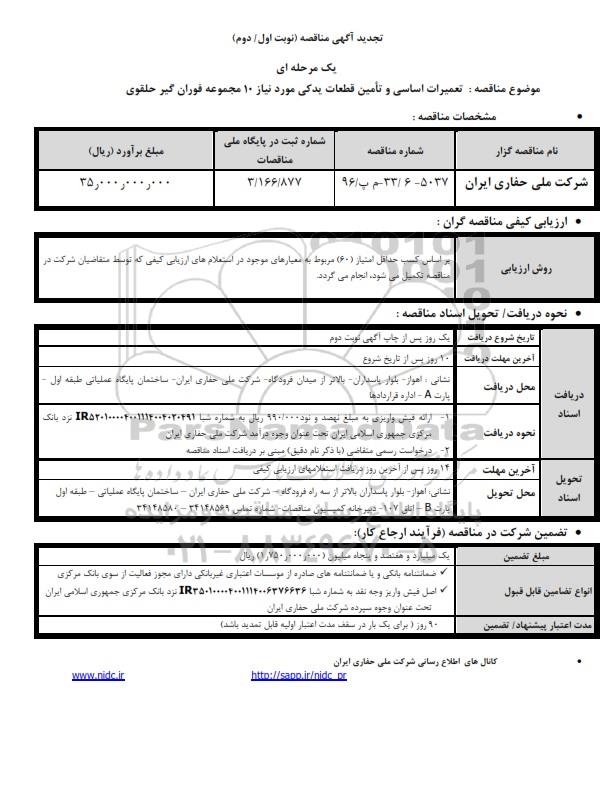 تجدید آگهی مناقصه (نوبت اول/ دوم)
یک مرحله ای
موضوع مناقصه : تعمیرات اساسی و تأمین قطعات یدکی مورد نیاز ۱۰ مجموعه فوران گیر حلقوی
• مشخصات مناقصه :
نام مناقصه گزار شماره مناقصه شماره ثبت در پایگاه ملی مناقصات مبلغ برآورد (ریال)
شرکت ملی حفاری ایران ۵۰۳۷- ۶ /۳۳-م پ/۹۶ ۳/۱۶۶/۸۷۷ ۳۵٫۰۰۰٫۰۰۰٫۰۰۰
• ارزیابی کیفی مناقصه گران :
روش ارزیابی
بر اساس کسب حداقل امتیاز (۶۰) مربوط به معیارهای موجود در استعلام های ارزیابی کیفی که توسط متقاضیان شرکت در
مناقصه تکمیل می شود، انجام می گردد.
• نحوه دریافت/ تحویل اسناد مناقصه :
دریافت اسناد
تاریخ شروع دریافت یک روز پس از چاپ آگهی نوبت دوم
آخرین مهلت دریافت ۱۰ روز پس از تاریخ شروع
محل دریافت نشانی : اهواز- بلوار پاسداران- بالاتر از میدان فرودگاه- شرکت ملی حفاری ایران- ساختمان پایگاه عملیاتی طبقه اول -
پارت A - اداره قراردادها
نحوه دریافت
۱- ارائه فیش واریزی به مبلغ نهصد و نود/۹۹۰/۰۰۰ ریال به شماره شبا IR۵۲۰۱۰۰۰۰۴۰۰۱۱۱۴۰۰۴۰۲۰۴۹۱ نزد بانک
مرکزی جمهوری اسلامی ایران تحت عنوان وجوه درآمد شرکت ملی حفاری ایران
۲- درخواست رسمی متقاضی (با ذکر نام دقیق) مبنی بر دریافت اسناد مناقصه
تحویل اسناد
آخرین مهلت ۱۴ روز پس از آخرین روز دریافت استعلامهای ارزیابی کیفی
محل تحویل نشانی: اهواز- بلوار پاسداران بالاتر از سه راه فرودگاه – شرکت ملی حفاری ایران – ساختمان پایگاه عملیاتی – طبقه اول
پارت B – اتاق ۱۰۷- دبیرخانه کمیسیون مناقصات- شماره تماس ۳۴۱۴۸۵۶۹ – ۳۴۱۴۸۵۸۰
• تضمین شرکت در مناقصه (فرآیند ارجاع کار):
مبلغ تضمین یک میلیارد و هفتصد و پنجاه میلیون (۱٫۷۵۰٫۰۰۰٫۰۰۰) ریال
انواع تضامین قابل قبول
✓ ضمانتنامه بانکی و یا ضمانتنامه های صادره از موسسات اعتباری غیربانکی دارای مجوز فعالیت از سوی بانک مرکزی
✓ اصل فیش واریز وجه نقد به شماره شبا IR۳۵۰۱۰۰۰۰۴۰۰۱۱۱۴۰۰۶۳۷۶۶۳۶ نزد بانک مرکزی جمهوری اسلامی ایران
تحت عنوان وجوه سپرده شرکت ملی حفاری ایران
مدت اعتبار پیشنهاد/ تضمین ۹۰ روز ( برای یک بار در سقف مدت اعتبار اولیه قابل تمدید باشد)
• کانال های اطلاع رسانی شرکت ملی حفاری ایران
http://sapp.ir/nidc_pr www.nidc.ir
ParsNamadData
پایگاه اطلاع رسانی مناقصه و مزایده
۰۲۱-۸۸۳۴۹۶۷۰-۵